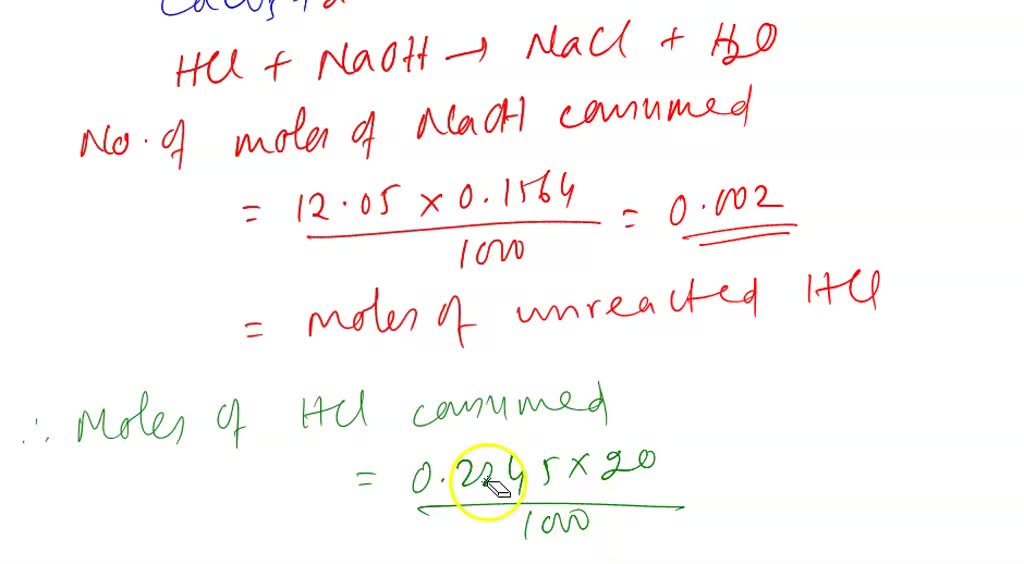 HCl + NaOH → NaCl + H2O
No. of moles of NaOH consumed
= 12.05 × 0.1564 / 1000 = 0.002
= moles of unreacted HCl
∴ Moles of HCl consumed
= 0.2245 × 20 / 1000